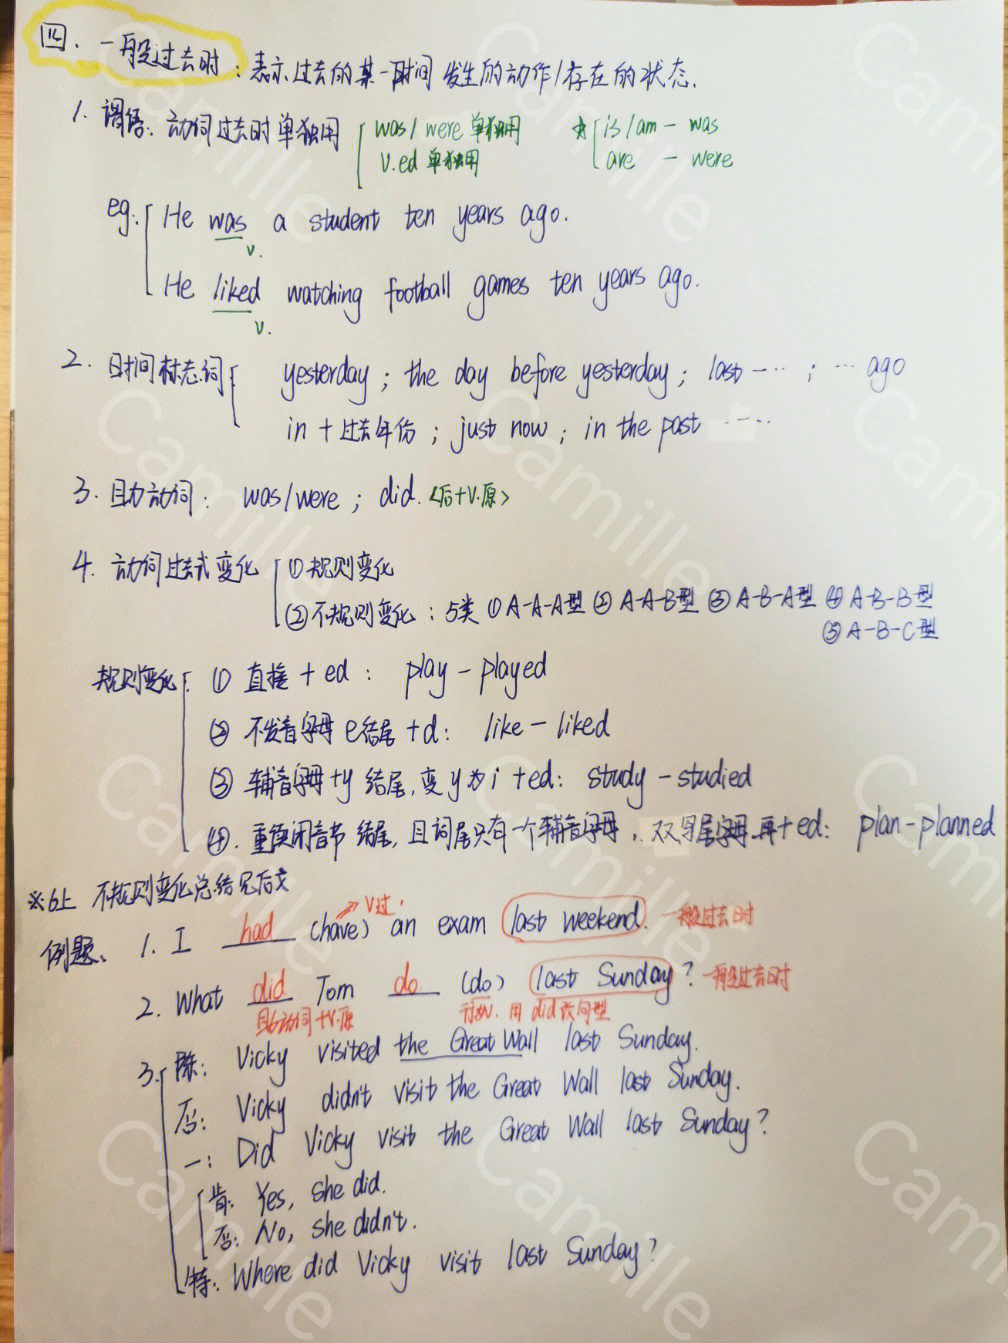 四、一般过去时：表示过去的某一时间发生的动作/存在的状态.
1. 谓语：动词过去时单独用 was/were 单独用 ☆ is/am - was
v.ed 单独用 are - were
eg: He was a student ten years ago.
v.
He liked watching football games ten years ago.
v.
2. 时间标志词 yesterday ; the day before yesterday ; last -... ; ... ago
in + 过去年份 ; just now ; in the past .....
3. 助动词: was/were ; did. <后+V.原>
4. 动词过去式变化 ①规则变化
②不规则变化：5类 ①A-A-A型 ②A-A-B型 ③A-B-A型 ④A-B-B型
⑤A-B-C型
规则变化 ① 直接 + ed : play - played
② 不发音字母 e 结尾 +d: like - liked
③ 辅音字母+y 结尾, 变 y 为 i +ed: study - studied
④. 重读闭音节 结尾, 且词尾只有一个辅音字母, 双写尾字母 再+ed: plan-planned
※6上 不规则变化总结见后文
V过.
例题: 1. I had (have) an exam last weekend. 一般过去时
2. What did Tom do (do) last Sunday? 一般过去时
助动词+V.原 行为v. 用 did 疑问型
3. 陈: Vicky visited the Great Wall last Sunday.
否: Vicky didn't visit the Great Wall last Sunday.
一: Did Vicky visit the Great Wall last Sunday?
肯: Yes, she did.
否: No, she didn't.
特: Where did Vicky visit last Sunday?
Camille